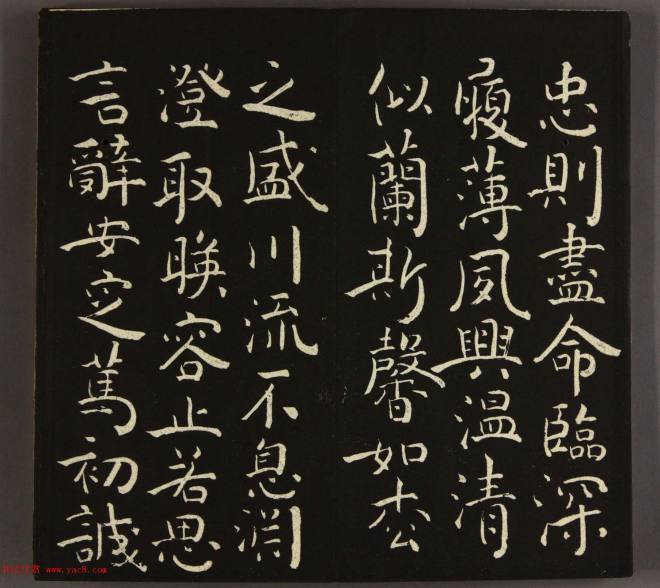 忠則盡命臨深
履薄夙興温清
似蘭斯馨如枀
之盛川流不息淵
澄取暎容止若思
言辭安定篤初誠
书法欣赏 www.yac8.com